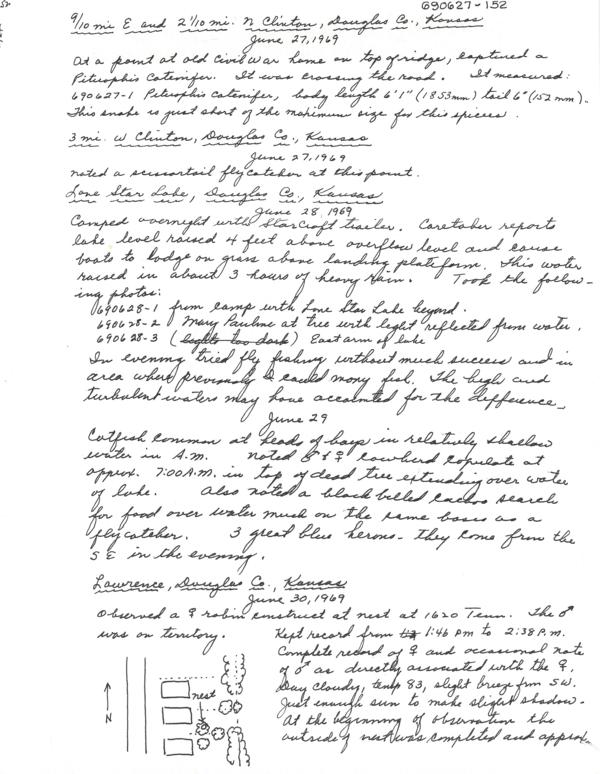 690627-152
9/10 mi E and 2 1/10 mi. N Clinton, Douglas Co., Kansas
June 27, 1969
At a point at old Civil War home on top of ridge, captured a
Pituophis Catenifer. It was crossing the road. It measured:
690627-1 Pituophis Catenifer, body length 6'1" (1853mm) tail 6" (152 mm).
This snake is just short of the maximum size for this species.
3 mi. W Clinton, Douglas Co., Kansas
June 27, 1969
noted a scissortail flycatcher at this point.
Lone Star Lake, Douglas Co., Kansas
June 28, 1969
Camped overnight with StarCraft trailer. Caretaker reports
lake level raised 4 feet above overflow level and cause
boats to lodge on grass above landing plateform. This water
raised in about 3 hours of heavy rain. Took the follow-
ing photos:
690628-1 from camp with Lone Star Lake beyond.
690628-2 Mary Pauline at tree with light reflected from water.
690628-3 (light too dark) East arm of lake
In evening tried fly fishing without much success and in
area where previously I could many fish. The high and
turbulent waters may have accounted for the difference.
June 29
Catfish common at heads of bays in relatively shallow
water in A.M. noted ♂ & ♀ cowbird copulate at
approx. 7:00 A.M. in top of dead tree extending over water
of lake. Also noted a black billed cuckoo search
for food over water much on the same basis as a
flycatcher. 3 great blue herons - they come from the
SE in the evening.
Lawrence, Douglas Co., Kansas
June 30, 1969
Observed a ♀ robin construct at nest at 1620 Tenn. The ♂
was on territory. Kept record from 1:46 pm to 2:38 P.m.
Complete record of ♀ and occasional note
of ♂ as directly associated with the ♀.
Day cloudy, temp 83, slight breeze from SW.
Just enough sun to make slight shadow.
At the beginning of observation the
outside of nest was completed and approx.
nest
N